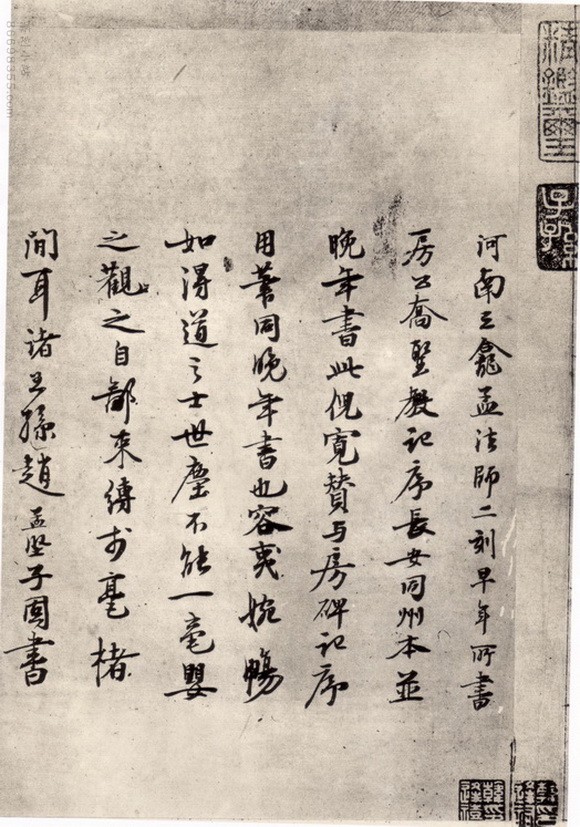 精鑒璽
子孫
河南三龕孟法師二刻早年所書
房公喬聖教記序長安同州本並
晚年書此倪寬贊与房碑記序
用筆同晚年書也容夷婉暢
如得道之士世塵不能一毫嬰
之觀之自鄙束縛於毫楮
間耳諸王孫趙孟堅子固書